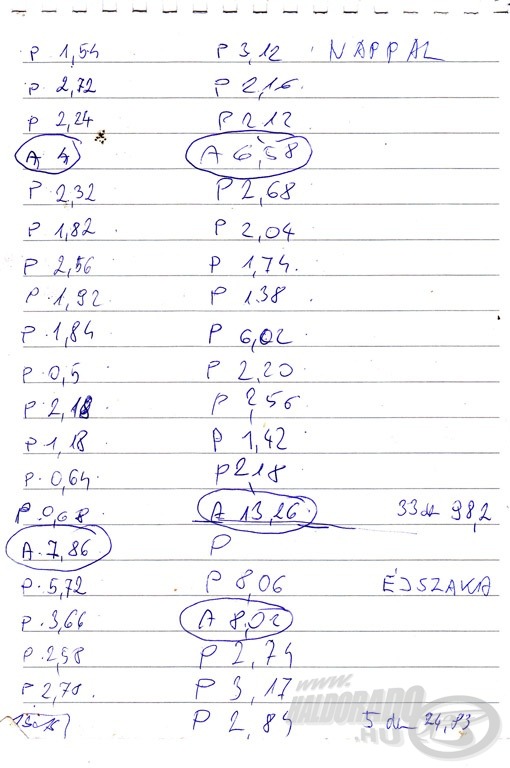 P 1,54
P 2,72
P 2,24
A 4
P 2,32
P 1,82
P 2,56
P 1,92
P 1,84
P 0,5
P 2,18
P 1,18
P 0,64
P 0,68
A 7,86
P 5,72
P 3,66
P 2,98
P 2,78
P 3,12
P 2,16
P 2,12
A 6,58
P 2,68
P 2,04
P 1,74
P 1,38
P 6,02
P 2,20
P 2,56
P 1,42
P 2,18
A 13,26
P
P 8,06
A 8,02
P 2,74
P 3,17
P 2,84
NAPPAL
33 db 98,2
ÉJSZAKA
5 db 24,83
www.
HALDORADO
.HU